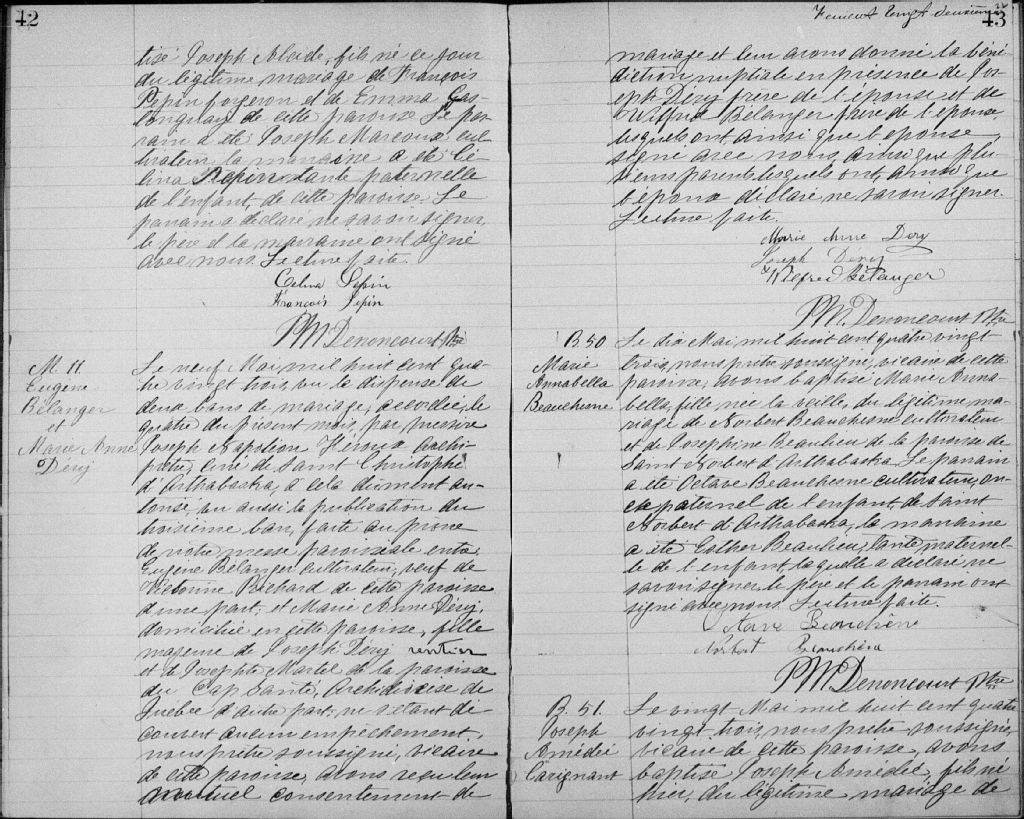 42
tisé Joseph Alcide, fils né ce jour
du légitime mariage de François
Pepin forgeron et de Emma Gas-
tonguay de cette paroisse. Le par-
rain a été Joseph Marcoux cul-
tivateur la marraine a été Cé-
lina Pepin tante paternelle
de l'enfant, de cette paroisse. Le
parrain a déclaré ne savoir signer,
le père et la marraine ont signé
avec nous. Lecture faite.
Celina Pepin
François Pepin
PM Denoncourt Ptre
M. 11
Eugène
Bélanger
et
Marie Anne
Déry
Le neuf Mai, mil huit cent qua-
tre vingt trois, vu la dispense de
deux bans de mariage, accordée, le
quatre du présent mois, par messire
Joseph Napoléon Héroux archi-
prêtre, curé de Saint Christophe
d'Arthabaska, à cela dûment au-
torisé, vu aussi la publication du
troisième ban, faite au prône
de notre messe paroissiale entre
Eugène Bélanger cultivateur, veuf de
Victorine Richard de cette paroisse
d'une part; et Marie Anne Déry,
domiciliée en cette paroisse, fille
majeure de Joseph Déry rentier
et de Josephte Martel de la paroisse
du Cap Santé, Archidiocèse de
Québec d'autre part; ne s'étant dé-
couvert aucun empêchement,
nous prêtre soussigné, vicaire
de cette paroisse, avons reçu leur
mutuel consentement de
43
mariage et leur avons donné la béné-
diction nuptiale en présence de Jos-
eph Déry frère de l'épouse et de
Wilfrid Bélanger frère de l'épouse,
lesquels ont ainsi que l'épouse
signé avec nous, ainsi que plu-
sieurs parents lesquels ont, ainsi que
l'époux déclaré ne savoir signer.
Lecture faite.
Marie Anne Dery
Joseph Dery
Wilfred Bélanger
PM. Denoncourt Ptre
B 50
Marie
Annabella
Beauchesne
Le dix Mai, mil huit cent quatre vingt
trois, nous prêtre soussigné, vicaire de cette
paroisse, avons baptisé Marie Anna-
bella, fille née la veille, du légitime ma-
riage de Norbert Beauchesne cultivateur
et de Josephine Beaulieu de la paroisse de
Saint Norbert d'Arthabaska. Le parrain
a été Octave Beauchesne cultivateur, on-
cle paternel de l'enfant, de Saint
Norbert d'Arthabaska, la marraine
a été Esther Beaulieu, tante maternel-
le de l'enfant, laquelle a déclaré ne
savoir signer, le père et le parrain ont
signé avec nous. Lecture faite.
PM Denoncourt Ptre
B. 51.
Joseph
Amédé
Carignant
Le vingt Mai mil huit cent quatre
vingt, trois, nous prêtre soussigné,
vicaire de cette paroisse, avons
baptisé Joseph Amédée, fils, né
hier, du légitime mariage de